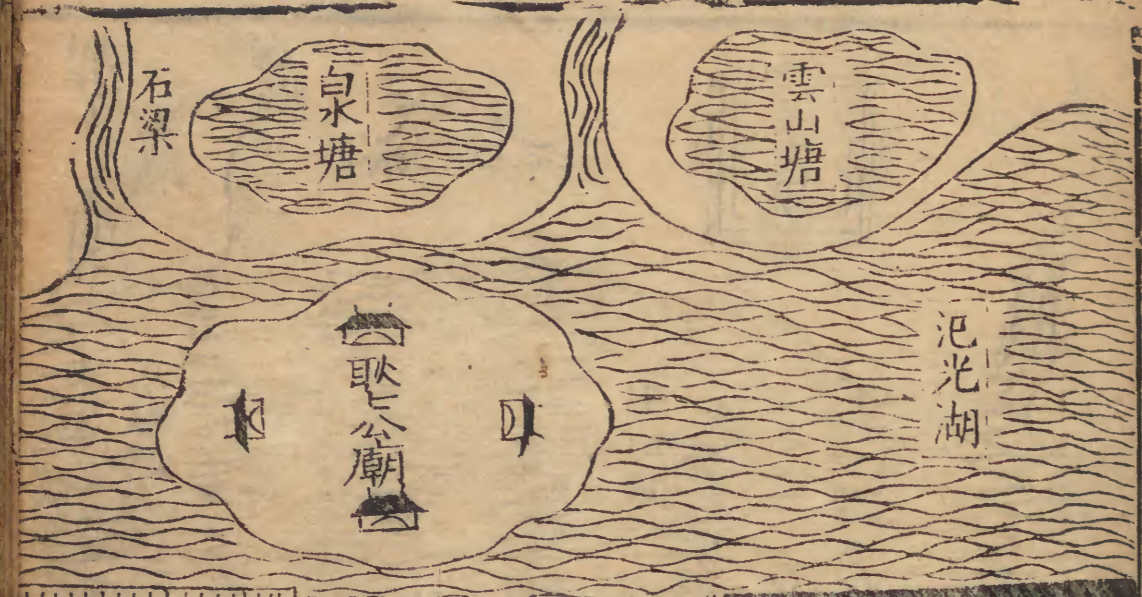 雲山塘
白水塘
石梁
氾光湖
耿七公廟